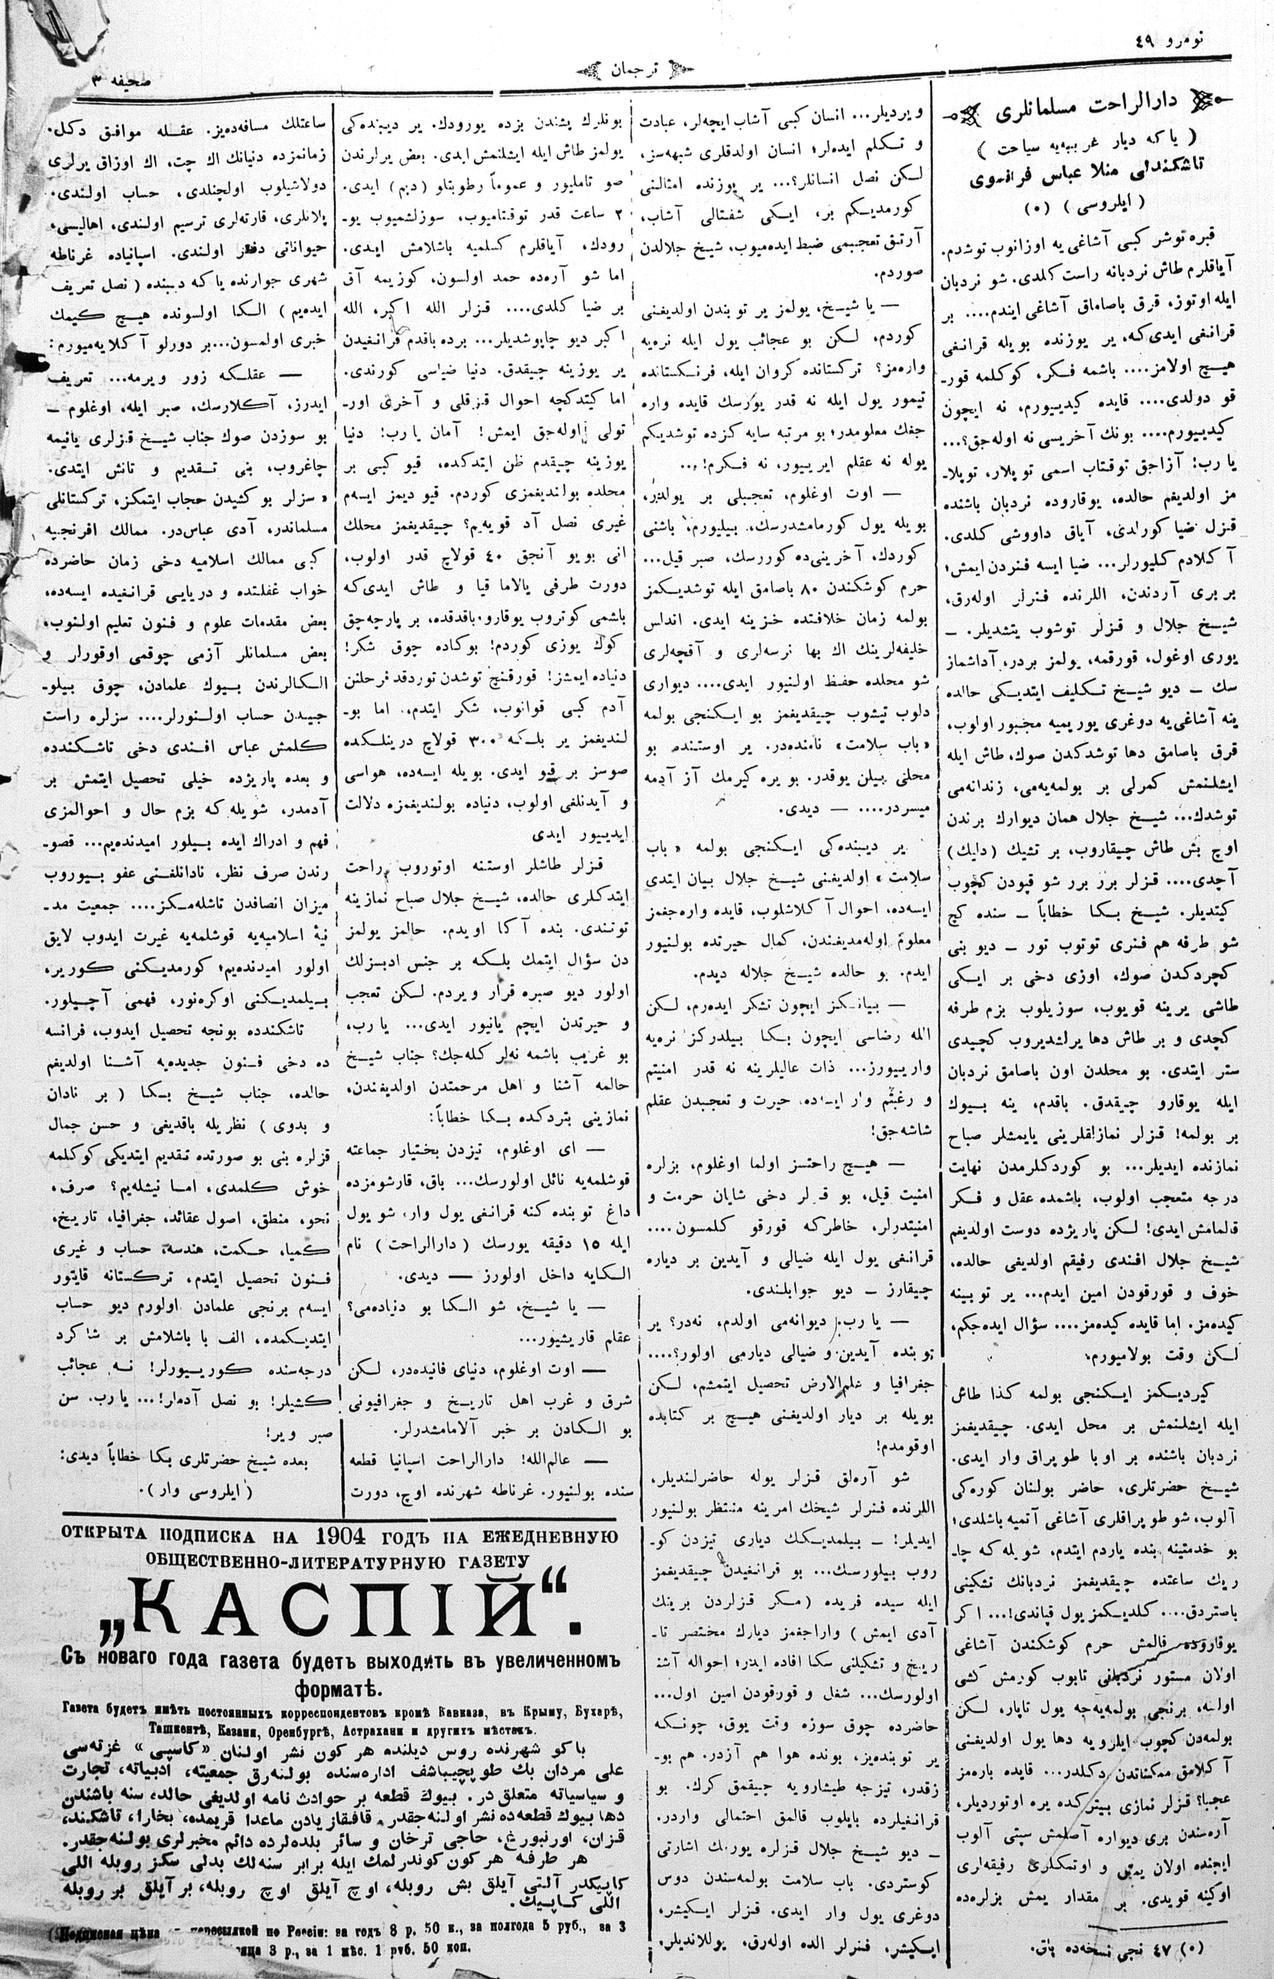 نومرو ٤٩
ترجمان
صحیفه ٣
دارالراحت مسلمانلری
( یاکه دیار غریبه‌یه سیاحت )
تاشکندلی منلا عباس فرانسوی
( ایلروسی ) (٥)
قبره توشر کبی آشاغی یه اوزانوب توشدم.
آیاقلرم طاش نردبانه راست کلدی. شو نردبان
ایله اوتوز، قرق باصاماق آشاغی ایندم.... بر
قرانغی ایدی‌که، یر یوزنده بویله قرانغی
هیچ اولامز.... باشمه فکر، کوکلمه قور-
قو دولدی.... قایده کیدییورم، نه ایچون
کیدییورم.... بونك آخریسی نه اوله‌جق؟...
یا رب! آزاجق توقتاب اسمی توپلار، توپلا-
مز اولدیغم حالده، یوقاروده نردبان باشنده
قزل ضیا کورلدی، آیاق داووشی کلدی.
آکلادم کلیورلر... ضیا ایسه فنردن ایمش؛
بربری آردندن، اللرنده فنرلر اوله‌رق،
شیخ جلال و قزلر توشوب یتشدیلر. —
یوری اوغول، قورقمه، یولمز بردر، آداشماز
سك — دیو شیخ تکلیف ایتدیکی حالده
ینه آشاغی‌یه دوغری یوریمیه مجبور اولوب،
قرق باصامق دها توشدکدن صوك، طاش ایله
ایشلنمش کمرلی بر بولمه‌یه‌می، زندانه‌می
توشدك... شیخ جلال همان دیوارك برندن
اوچ بش طاش چیقاروب، بر تشیك (دلیك)
آچدی.... قزلر برر برر شو قپودن کچوب
کیتدیلر. شیخ بکا خطاباً — سنده کچ
شو طرفه هم فنری توتوب تور — دیو بنی
کچردکدن صوك، اوزی دخی بر ایکی
طاشی یرینه قویوب، سوزیلوب بزم طرفه
کچدی و بر طاش دها یرلشدیروب کچیدی
ستر ایتدی. بو محلدن اون باصامق نردبان
ایله یوقارو چیقدق. باقدم، ینه بیوك
بر بولمه! قزلر نمازلقلرینی یایمشلر صباح
نمازنده ایدیلر... بو کوردکلرمدن نهایت
درجه متعجب اولوب، باشمده عقل و فکر
قالمامش ایدی! لکن پاریزده دوست اولدیغم
شیخ جلال افندی رفیقم اولدیغی حالده،
خوف و قورقودن امین ایدم... یر توبینه
کیده‌مز. اما قایده کیده‌مز.... سؤال ایده‌جکم،
لکن وقت بولامیورم.
کیردیکمز ایکنجی بولمه کذا طاش
ایله ایشلنمش بر محل ایدی. چیقدیغمز
نردبان باشنده بر اوبا طوپراق وار ایدی.
شیخ حضرتلری، حاضر بولنان کوره‌کی
آلوب، شو طوپراقلری آشاغی آتمیه باشلدی؛
بو خدمتینه بنده یاردم ایتدم، شویله که چا-
ریك ساعتده چیقدیغمز نردبانك تشکینی
باصتردق.... کلدیکمز یول قپاندی!... اکر
یوقاروده قالمش حرم کوشکندن آشاغی
اولان مستور نردبانی تاپوب کورمش کشی
اولسه، برنجی بولمه‌یه‌جه یول تاپار، لکن
بولمه‌دن کچوب ایلرویه دها یول اولدیغنی
آکلامق ممکناتدن دکلدر... قایده باره‌مز
عجبا؟ قزلر نمازی بیترکده یره اوتوردیلر،
آره‌سندن بری دیواره آصلمش سپتی آلوب
ایچنده اولان یمش و اوتمکلری رفیقه‌لری
اوکینه قویدی. بر مقدار یمش بزلره‌ده
(٥) ٤٧ نجی نسخه‌ده باق.
ویردیلر... انسان کبی آشاب ایچه‌لر، عبادت
و تکلم ایده‌لر؛ انسان اولدقلری شبهه‌سز،
لکن نصل انسانلر؟... یر یوزنده امثالنی
کورمدیکم بر، ایکی شفتالی آشاب،
آرتق تعجبمی ضبط ایده‌میوب، شیخ جلالدن
صوردم.
— یا شیخ، یولمز یر توبندن اولدیغنی
کوردم، لکن بو عجائب یول ایله نره‌یه
واره‌مز؟ ترکستانده کروان ایله، فرنکستانده
تیمور یول ایله نه قدر یورسك قایده واره
جغك معلومدر؛ بو مرتبه سایه کزده توشدیکم
یوله نه عقلم ایرییور، نه فکرم!...
— اوت اوغلوم، تعجبلی بر یولدر،
بویله یول کورمامشدرسك، بیلیورم، باشنی
کوردك، آخرینی‌ده کوررسك، صبر قیل...
حرم کوشکندن ٨٠ باصامق ایله توشدیکمز
بولمه زمان خلافتده خزینه ایدی. اندلس
خلیفه‌لرینك اك بها نرسه‌لری و آقچه‌لری
شو محلده حفظ اولنیور ایدی.... دیواری
دلوب تیشوب چیقدیغمز بو ایکنجی بولمه
«باب سلامت» نامنده‌در. یر اوستنده بو
محلنی بیلن یوقدر. بو یره کیرمك آز آدمه
میسردر.... — دیدی.
یر دیبنده‌کی ایکنجی بولمه «باب
سلامت» اولدیغنی شیخ جلال بیان ایتدی
ایسه‌ده، احوال آکلاشلوب، قایده واره‌جغمز
معلوم اوله‌مدیغندن، کمال حیرتده بولنیور
ایدم. بو حالده شیخ جلاله دیدم.
— بیانکز ایچون تشکر ایده‌رم، لکن
الله رضاسی ایچون بکا بیلدرکز نره‌یه
وارییورز... ذات عالیلرینه نه قدر امنیتم
و رغبتم وار ایسه‌ده، حیرت و تعجبدن عقلم
شاشه‌جق!
— هیچ راحتسز اولما اوغلوم، بزلره
امنیت قیل، بو قزلر دخی شایان حرمت و
امنیتدرلر، خاطرکه قورقو کلمسون....
قرانغی یول ایله ضیالی و آیدین بر دیاره
چیقارز — دیو جوابلندی.
— یا رب: دیوانه‌می اولدم، نه‌در؟ یر
توبنده آیدین و ضیالی دیارمی اولور؟....
جغرافیا و علم‌الارض تحصیل ایتمشم، لکن
بویله بر دیار اولدیغنی هیچ بر کتابده
اوقومدم!
شو آره‌لق قزلر یوله حاضرلندیلر،
اللرنده فنرلر شیخك امرینه منتظر بولنیور
ایدیلر! — بیلمدیکك دیاری تیزدن کو-
روب بیلورسك... بو قرانغیدن چیقدیغمز
ایله سیده فریده (مکر قزلردن برینك
آدی ایمش) واراجغمز دیارك مختصر تا-
ریخ و تشکیلنی سکا افاده ایدر؛ احواله آشنا
اولورسك... شغل و قورقودن امین اول...
حاضرده چوق سوزه وقت یوق، چونکه
یر توبنده‌یز، بونده هوا هم آزدر. هم بو-
زقدر، تیزجه طیشارویه چیقمق کرك. بو
قرانغیلرده بایلوب قالمق احتمالی واردر.
— دیو شیخ جلال قزلره یورمك اشارتی
کوستردی. باب سلامت بولمه‌سندن دوس
دوغری یول وار ایدی. قزلر ایکیشر،
ایکیشر، فنرلر الده اوله‌رق، یوللاندیلر.
بونلرك پشندن بزده یورودك. یر دیبنده‌کی
یولمز طاش ایله ایشلنمش ایدی. بعض یرلرندن
صو تاملیور و عموماً رطوبتلو (دیم) ایدی.
٢ ساعت قدر توقتامیوب، سوزلشمیوب یو-
رودك، آیاقلرم کسلمیه باشلامش ایدی.
اما شو آره‌ده حمد اولسون، کوزیمه آق
بر ضیا کلدی.... قزلر الله اکبر، الله
اکبر دیو چاپوشدیلر... برده باقدم قرانغیدن
یر یوزینه چیقدق. دنیا ضیاسی کورندی.
اما کیتدکچه احوال قزقلی و آخری اور-
تولی اوله‌جق ایمش! آمان یا رب! دنیا
یوزینه چیقدم ظن ایتدکده، قیو کبی بر
محلده بولندیغمزی کوردم. قیو دیمز ایسه‌م
غیری نصل آد قویه‌یم؟ چیقدیغمز محلك
انی بویو آنجق ٤٠ قولاچ قدر اولوب،
دورت طرفی یالاما قیا و طاش ایدی‌که
باشمی کوتروب یوقارو باقدقده، بر پارچه‌چق
کوك یوزی کوردم! بوکاده چوق شکر!
دنیاده ایمشز! قورقنچ توشدن توردقد فرحلنن
آدم کبی قوانوب، شکر ایتدم، اما بو-
لندیغمز یر بلکه ٣٠٠ قولاچ درینلکده
صوسز بر قیو ایدی. بویله ایسه‌ده، هواسی
و آیدنلغی اولوب، دنیاده بولندیغمزه دلالت
ایدییور ایدی
قزلر طاشلر اوستنه اوتوروب راحت
ایتدکلری حالده، شیخ جلال صباح نمازینه
توتندی. بنده آکا اویدم. حالمز یولمز
دن سؤال ایتمك بلکه بر جنس ادبسزلك
اولور دیو صبره قرار ویردم. لکن تعجب
و حیرتدن ایچم یانیور ایدی... یا رب،
بو غریب باشمه نه‌لر کله‌جك؟ جناب شیخ
حالمه آشنا و اهل مرحمتدن اولدیغندن،
نمازینی بتردکده بکا خطاباً:
— ای اوغلوم، تیزدن بختیار جماعته
قوشلمه‌یه نائل اولورسك... باق، قارشومزده
داغ توبنده کنه قرانغی یول وار، شو یول
ایله ١٥ دقیقه یورسك (دارالراحت) نام
الکایه داخل اولورز — دیدی.
— یا شیخ، شو الکا بو دنیاده‌می؟
عقلم قاریشیور...
— اوت اوغلوم، دنیای فانیده‌در، لکن
شرق و غرب اهل تاریخ و جغرافیونی
بو الکادن بر خبر آلامامشدرلر.
— عالم‌الله! دارالراحت اسپانیا قطعه
سنده بولنیور. غرناطه شهرنده اوچ، دورت
ساعتلك مسافه‌ده‌یز. عقله موافق دکل.
زمانمزده دنیانك اك چت، اك اوزاق یرلری
دولاشیلوب اولچنلدی، حساب اولندی.
پلانلری، قارته‌لری ترسیم اولندی، اهالیسی،
حیواناتی دفتر اولندی. اسپانیاده غرناطه
شهری جوارنده یاکه دیبنده (نصل تعریف
ایده‌یم) الکا اولسونده هیچ کیمك
خبری اولمسون...بر دورلو آکلایه‌میورم:
— عقلکه زور ویرمه... تعریف
ایدرز، آکلارسك، صبر ایله، اوغلوم —
بو سوزدن صوك جناب شیخ قزلری یانیمه
چاغروب، بنی تقدیم و تانش ایتدی.
«سزلر بو کشیدن حجاب ایتمکز، ترکستانلی
مسلماندر، آدی عباس‌در. ممالك افرنجیه
کبی ممالك اسلامیه دخی زمان حاضرده
خواب غفلتده و دریایی قرانغیده ایسه‌ده،
بعض مقدمات علوم و فنون تعلیم اولنوب،
بعض مسلمانلر آزمی چوقمی اوقورلر و
الکالرندن بیوك علمادن، چوق بیلو-
جیدن حساب اولنورلر.... سزلره راست
کلمش عباس افندی دخی تاشکندده
و بعده پاریزده خیلی تحصیل ایتمش بر
آدمدر، شویله که بزم حال و احوالمزی
فهم و ادراك ایده بیلور امیدنده‌یم... قصو-
رندن صرف نظر، نادانلغنی عفو بیوروب
میزان انصافدن تاشله‌مکز.... جمعیت مد-
نیهٔ اسلامیه‌یه قوشلمه‌یه غیرت ایدوب لایق
اولور امیدنده‌یم؛ کورمدیکنی کوریر،
بیلمدیکنی اوکره‌نور، فهمی آچیلور.
تاشکندده بونجه تحصیل ایدوب، فرانسه
ده دخی فنون جدیده‌یه آشنا اولدیغم
حالده، جناب شیخ بکا (بر نادان
و بدوی) نظریله باقدیغی و حسن جمال
قزلره بنی بو صورتده تقدیم ایتدیکی کوکلمه
خوش کلمدی، اما نیشله‌یم؟ صرف،
نحو، منطق، اصول عقائد، جغرافیا، تاریخ،
کمیا، حکمت، هندسه، حساب و غیری
فنون تحصیل ایتدم، ترکستانه قایتور
ایسه‌م برنجی علمادن اولورم دیو حساب
ایتدیکمده، الف با باشلامش بر شاکرد
درجه‌سنده کورییورلر! نه عجائب
کشیلر! بو نصل آدملر!... یا رب. سن
صبر ویر!
بعده شیخ حضرتلری بکا خطاباً دیدی:
(ایلروسی وار).
ОТКРЫТА ПОДПИСКА НА 1904 ГОДЪ НА ЕЖЕДНЕВНУЮ
ОБЩЕСТВЕННО-ЛИТЕРАТУРНУЮ ГАЗЕТУ
„КАСПІЙ“.
Съ новаго года газета будетъ выходить въ увеличенномъ
форматѣ.
Газета будетъ имѣть постоянныхъ корреспондентовъ кромѣ Кавказа, въ Крыму, Бухарѣ,
Ташкентѣ, Казани, Оренбургѣ, Астрахани и другихъ мѣстахъ.
باکو شهرنده روس دیلنده هر کون نشر اولنان «کاسپی» غزته‌سی
علی مردان بك طوپچیباشف اداره‌سنده بولنه‌رق جمعیته، ادبیاته، تجارت
و سیاسیاته متعلق‌در. بیوك قطعه بر حوادث نامه اولدیغی حالد، سنه باشندن
دها بیوك قطعه‌ده نشر اولنه‌جقدر. قافقازیادن ماعدا قریمده، بخارا، تاشکند،
قزان، اورنبورغ، حاجی ترخان و سائر بلده‌لرده دائم مخبرلری بولنه‌جقدر.
هر طرفه هر کون کوندرلمك ایله برابر سنه‌لك بدلی سکز روبله اللی
کاپیکدر آلتی آیلق بش روبله، اوچ آیلق اوچ روبله، بر آیلق بر روبله
اللی کاپیك.
(Подписная цѣна пересылкой по Россіи: за годъ 8 р. 50 к., за полгода 5 руб., за 3
3 р., за 1 мѣс. 1 руб. 50 коп.